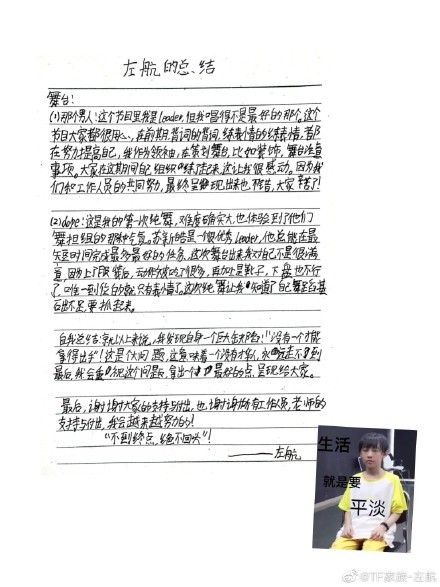 左航的总结
舞台:
(1)那个男人:这个节目里我是leader,但我唱得不是最好的那个。这个
节目大家都很用心,在前期背词的背词,练表情的练表情。都
在努力提高自己,我作为领袖,在策划舞台,比如装饰,舞台注意
事项。大家在这期间自己组织练起来,这让我很感动。因为我
们和工作人员的共同努力,最终呈现出来也不错,大家辛苦了!
(2)dope:这是我的第一次纯舞,难度确实大,也体验到了他们
舞担组的那种气息。苏新皓是一个很优秀leader,他总能在最
短时间完成最多最好的任务。这次舞台出来我对自己不是很满
意,因为上了服装后,动作就小很多,再加上是靴子,下盘也不行
了,唯一到位的就只有表情了。这次纯舞让我知道了自己舞蹈基
石出不足,要抓起来。
自我总结:就以上来说,我发现自身一个巨大缺陷!"没有一个能
拿得出手"!这是个大问题,这意味着一个没有才能的人,永远走不到
最后,我会重视这个问题,拿出一个最好的点,呈现给大家。
最后,谢谢大家的支持与付出,也谢谢所有工作人员,老师的
支持与付出,我会越来越努力的!
"不到终点,绝不回头"!
——左航
生活
就是要
平淡
@TF家族-左航